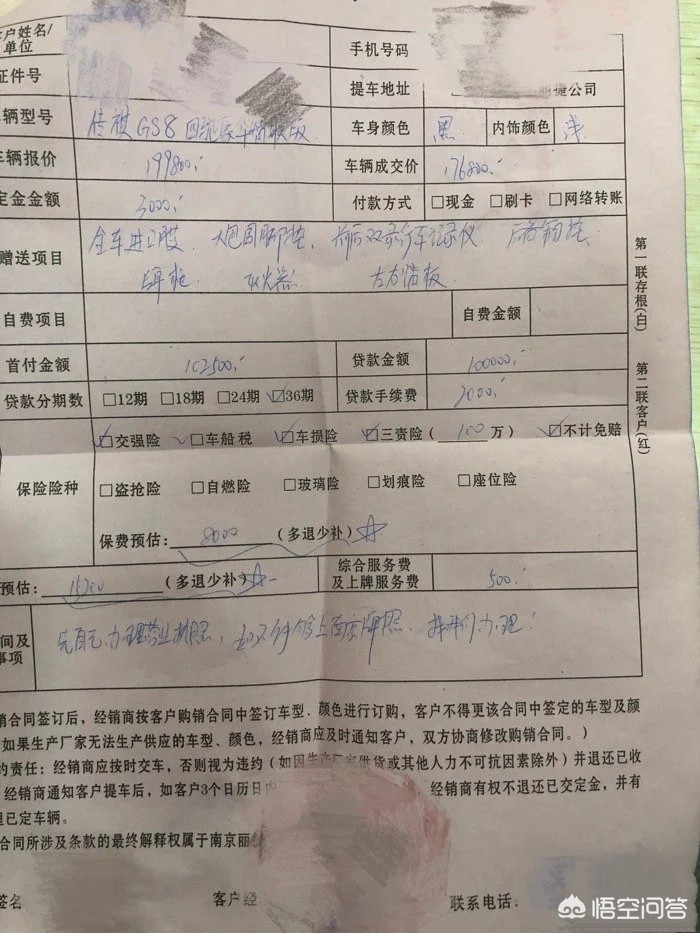 客户姓名/
单位
手机号码
证件号
提车地址 捷公司
车辆型号 传祺GS8 四驱豪华智联版 车身颜色 黑 内饰颜色 浅
车辆报价 199800. 车辆成交价 176800.
定金金额 3000. 付款方式 □现金 □刷卡 □网络转账
赠送项目 全车进口膜. 大包围脚垫. 前后双录行车记录仪 后备箱垫.
灭火器 挡板
自费项目 自费金额
首付金额 102500. 贷款金额 100000.
贷款分期数 □12期 □18期 □24期 ☑36期 贷款手续费 3000.
☑交强险 ☑车船税 ☑车损险 ☑三责险( 100 万) ☑不计免赔
保险险种 □盗抢险 □自燃险 □玻璃险 □划痕险 □座位险
保费预估: 8000 (多退少补)☆
预估: (多退少补)☆ 综合服务费
及上牌服务费 500.
间及
事项 办理营业执照, 上南京牌照. 办理!
销合同签订后,经销商按客户购销合同中签订车型、颜色进行订购,客户不得更该合同中签定的车型及颜
如果生产厂家无法生产供应的车型、颜色,经销商应及时通知客户,双方协商修改购销合同。)
约责任:经销商应按时交车,否则视为违约(如因生产厂家供货或其他人力不可抗因素除外)并退还已收
经销商通知客户提车后,如客户3个日历日内 经销商有权不退还已交定金,并有
理已定车辆。
合同所涉及条款的最终解释权属于南京丽
签名 客户经 联系电话:
第一联存根(白) 第二联客户(红)
悟空问答